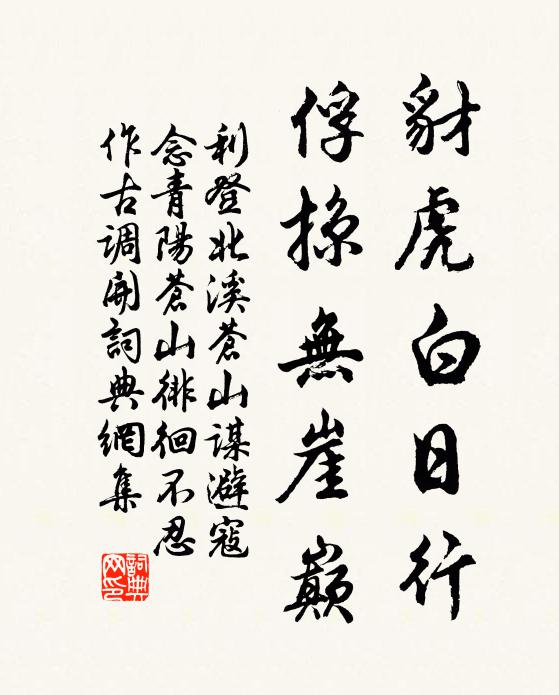 豺虎白日行
俘掠無崖巔
利登北溪蒼山謀避寇
念青陽蒼山徘徊不忍
作古調開詞典網集
詞典網印